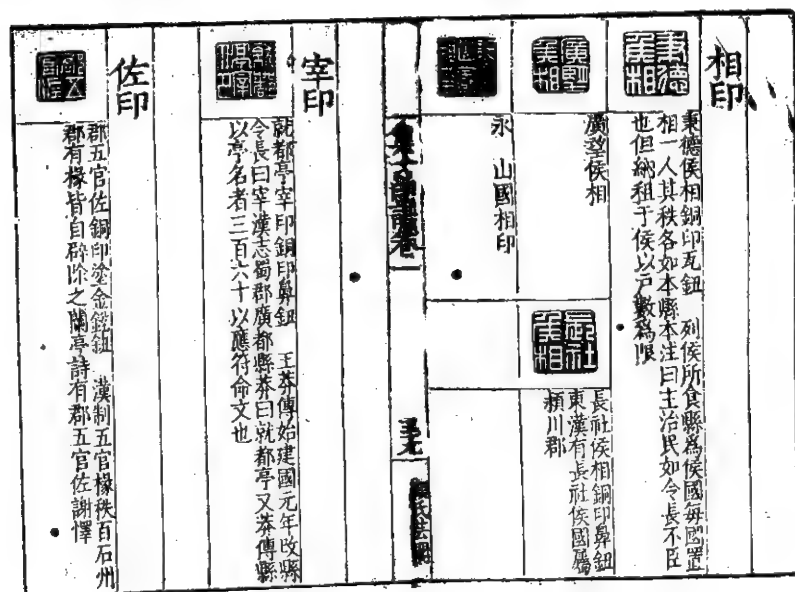 相印
秉德侯相
秉德侯相銅印瓦鈕　列侯所食縣爲侯國每國置
相一人其秩各如本縣本注曰主治民如令長不臣
也但納租于侯以戶數爲限
廣望侯相
廣望侯相
長社侯相
長社侯相銅印鼻鈕
東漢有長社侯國屬
潁川郡
永　山國相印
宰印
就都亭宰印銅印鼻鈕　王莽傳始建國元年改縣
令長曰宰漢志蜀郡廣都縣莽曰就都亭又莽傳縣
以亭名者三百六十以應符命文也
佐印
郡五官佐
郡五官佐銅印塗金鈕　漢制五官掾秩百石州
郡有掾皆自辟除之蘭亭詩有郡五官佐謝懌